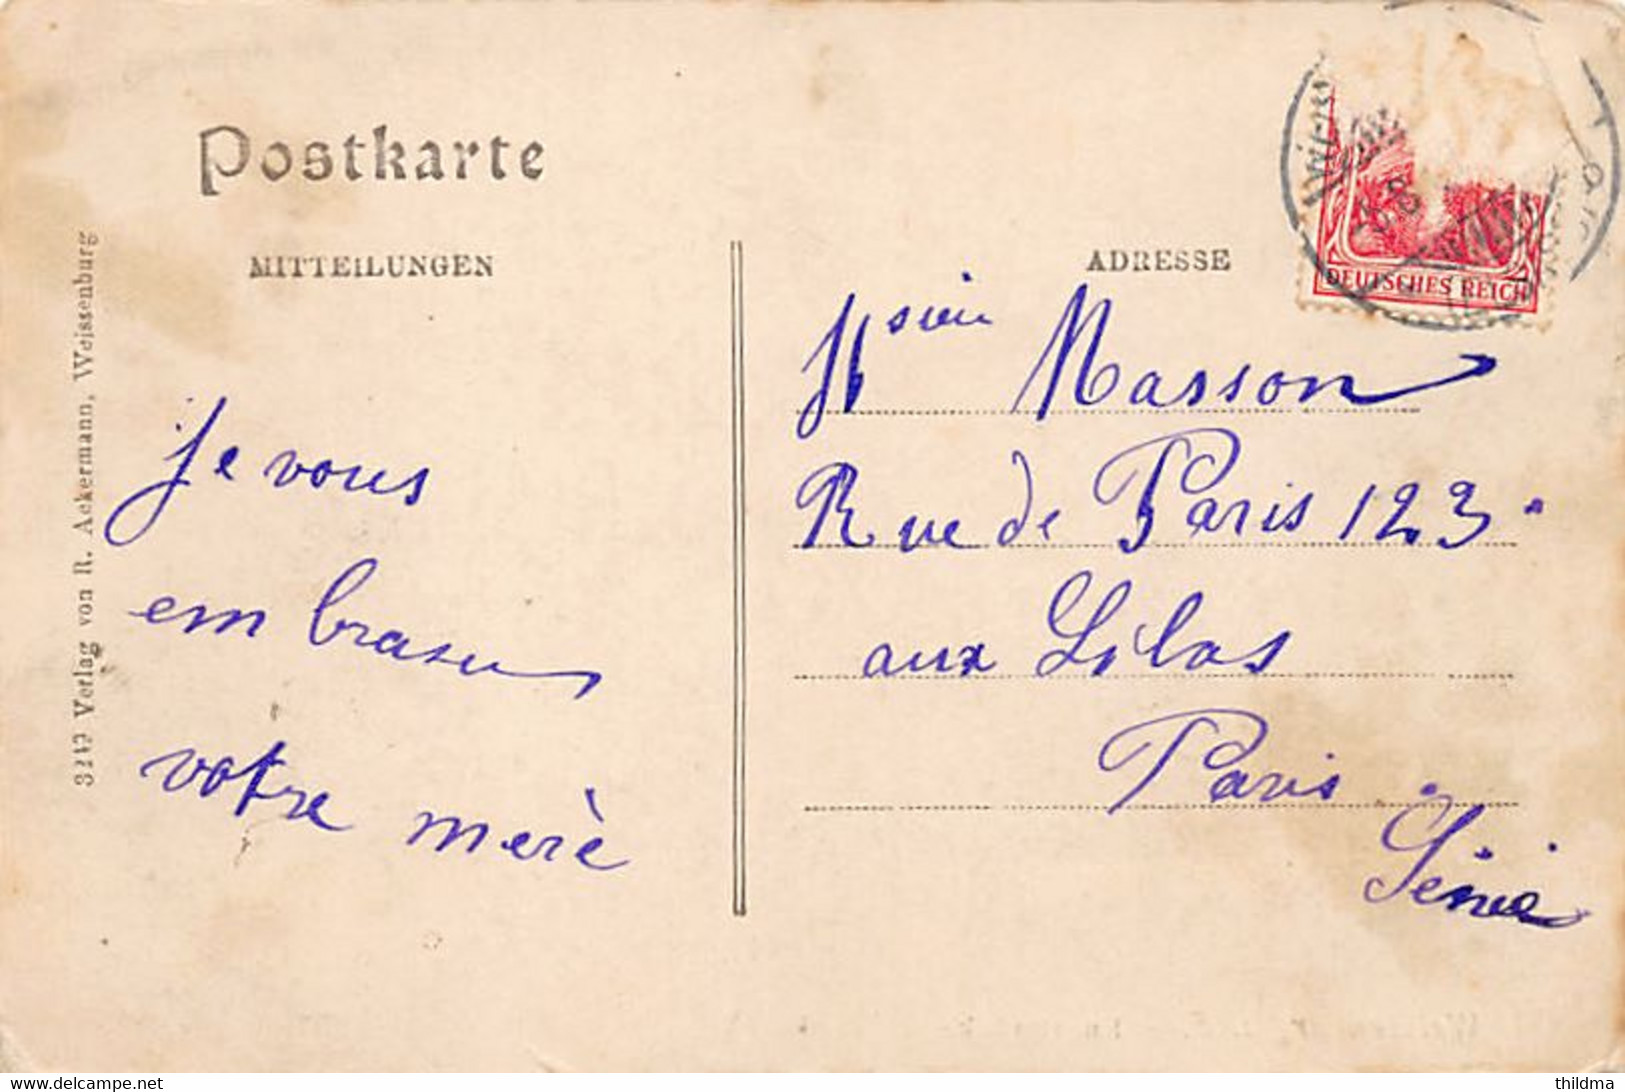 Postkarte
MITTEILUNGEN
ADRESSE
DEUTSCHES REICH
3249 Verlag von R. Ackermann, Weissenburg
je vous
em brasse
votre merè
Msieu Masson
Rue de Paris 123
aux Lilas
Paris
Seine
delcampe.net
thildma